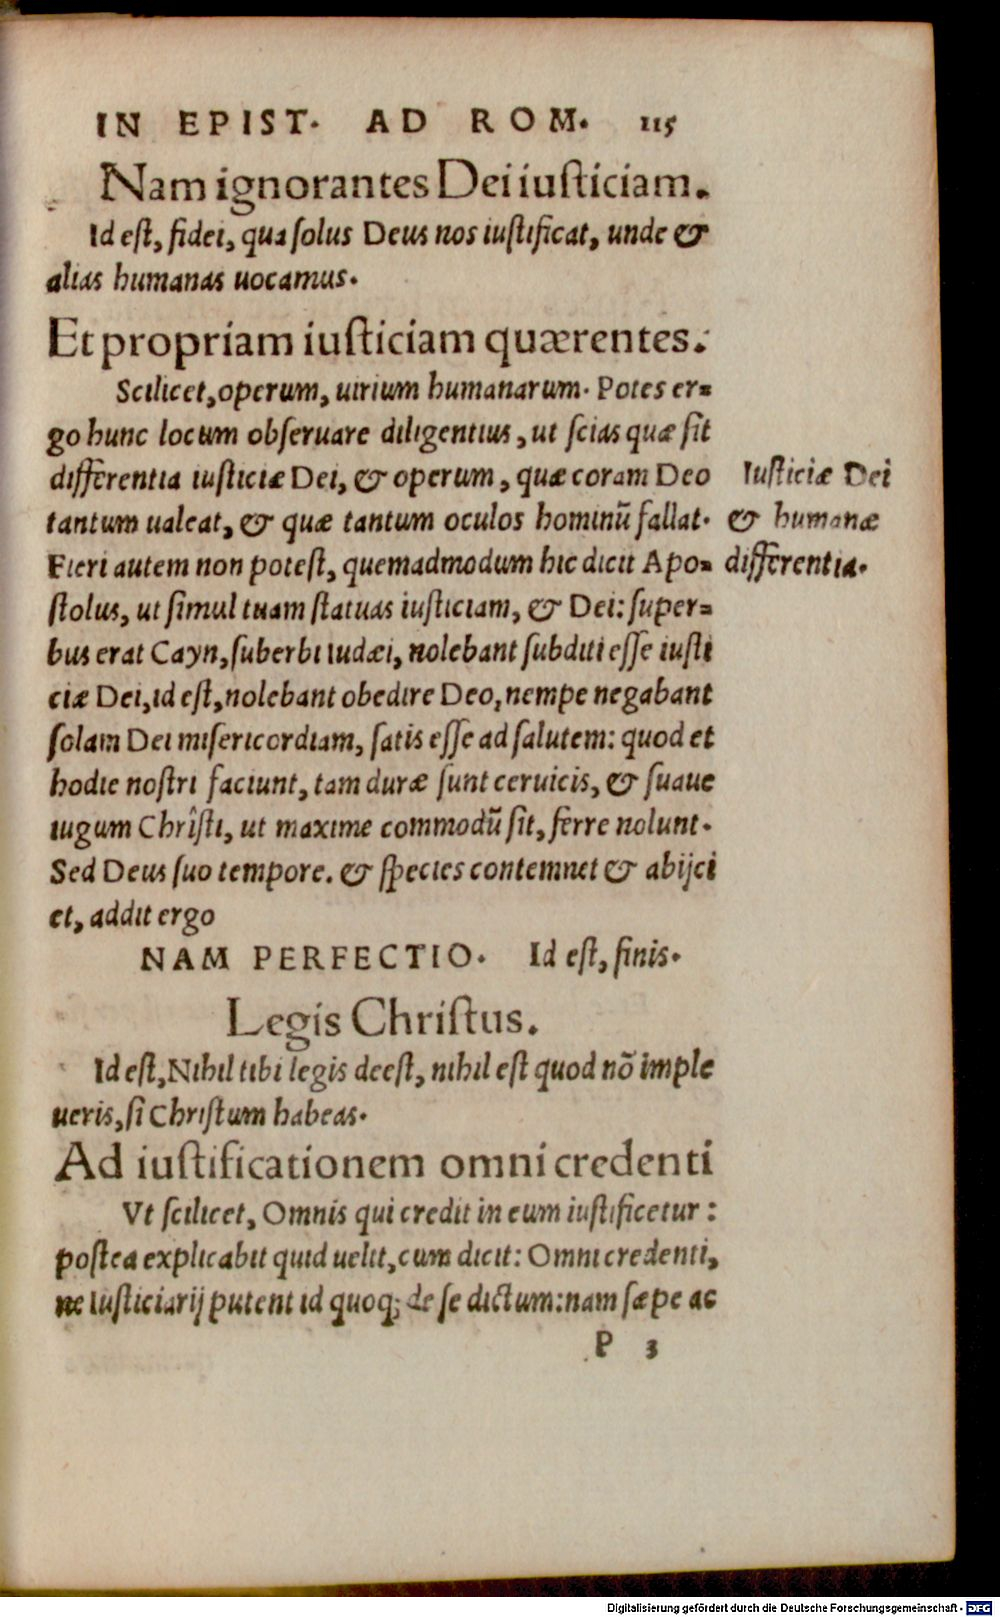 IN EPIST. AD ROM. 115
Nam ignorantes Dei iusticiam.
Id est, fidei, qua solus Deus nos iustificat, unde &
alias humanas uocamus.
Et propriam iusticiam quærentes.
Scilicet, operum, uirium humanarum. Potes er=
go hunc locum obseruare diligentius, ut scias quæ sit
differentia iusticiæ Dei, & operum, quæ coram Deo
tantum ualeat, & quæ tantum oculos hominũ fallat.
Fieri autem non potest, quemadmodum hic dicit Apo=
stolus, ut simul tuam statuas iusticiam, & Dei: super=
bus erat Cayn, suberbi iudæi, nolebant subditi esse iusti
ciæ Dei, id est, nolebant obedire Deo, nempe negabant
solam Dei misericordiam, satis esse ad salutem: quod et
hodie nostri faciunt, tam duræ sunt ceruicis, & suaue
iugum Christi, ut maxime commodũ sit, ferre nolunt.
Sed Deus suo tempore. & species contemnet & abijci
et, addit ergo
Iusticiæ Dei
& humanæ
differentia.
NAM PERFECTIO. Id est, finis.
Legis Christus.
Id est, Nihil tibi legis deest, nihil est quod nõ imple
ueris, si Christum habeas.
Ad iustificationem omni credenti
Vt scilicet, Omnis qui credit in eum iustificetur:
postea explicabit quid uelit, cum dicit: Omni credenti,
ne Iusticiarij putent id quoq; de se dictum: nam sæpe ac
P 3
Digitalisierung gefördert durch die Deutsche Forschungsgemeinschaft - DFG